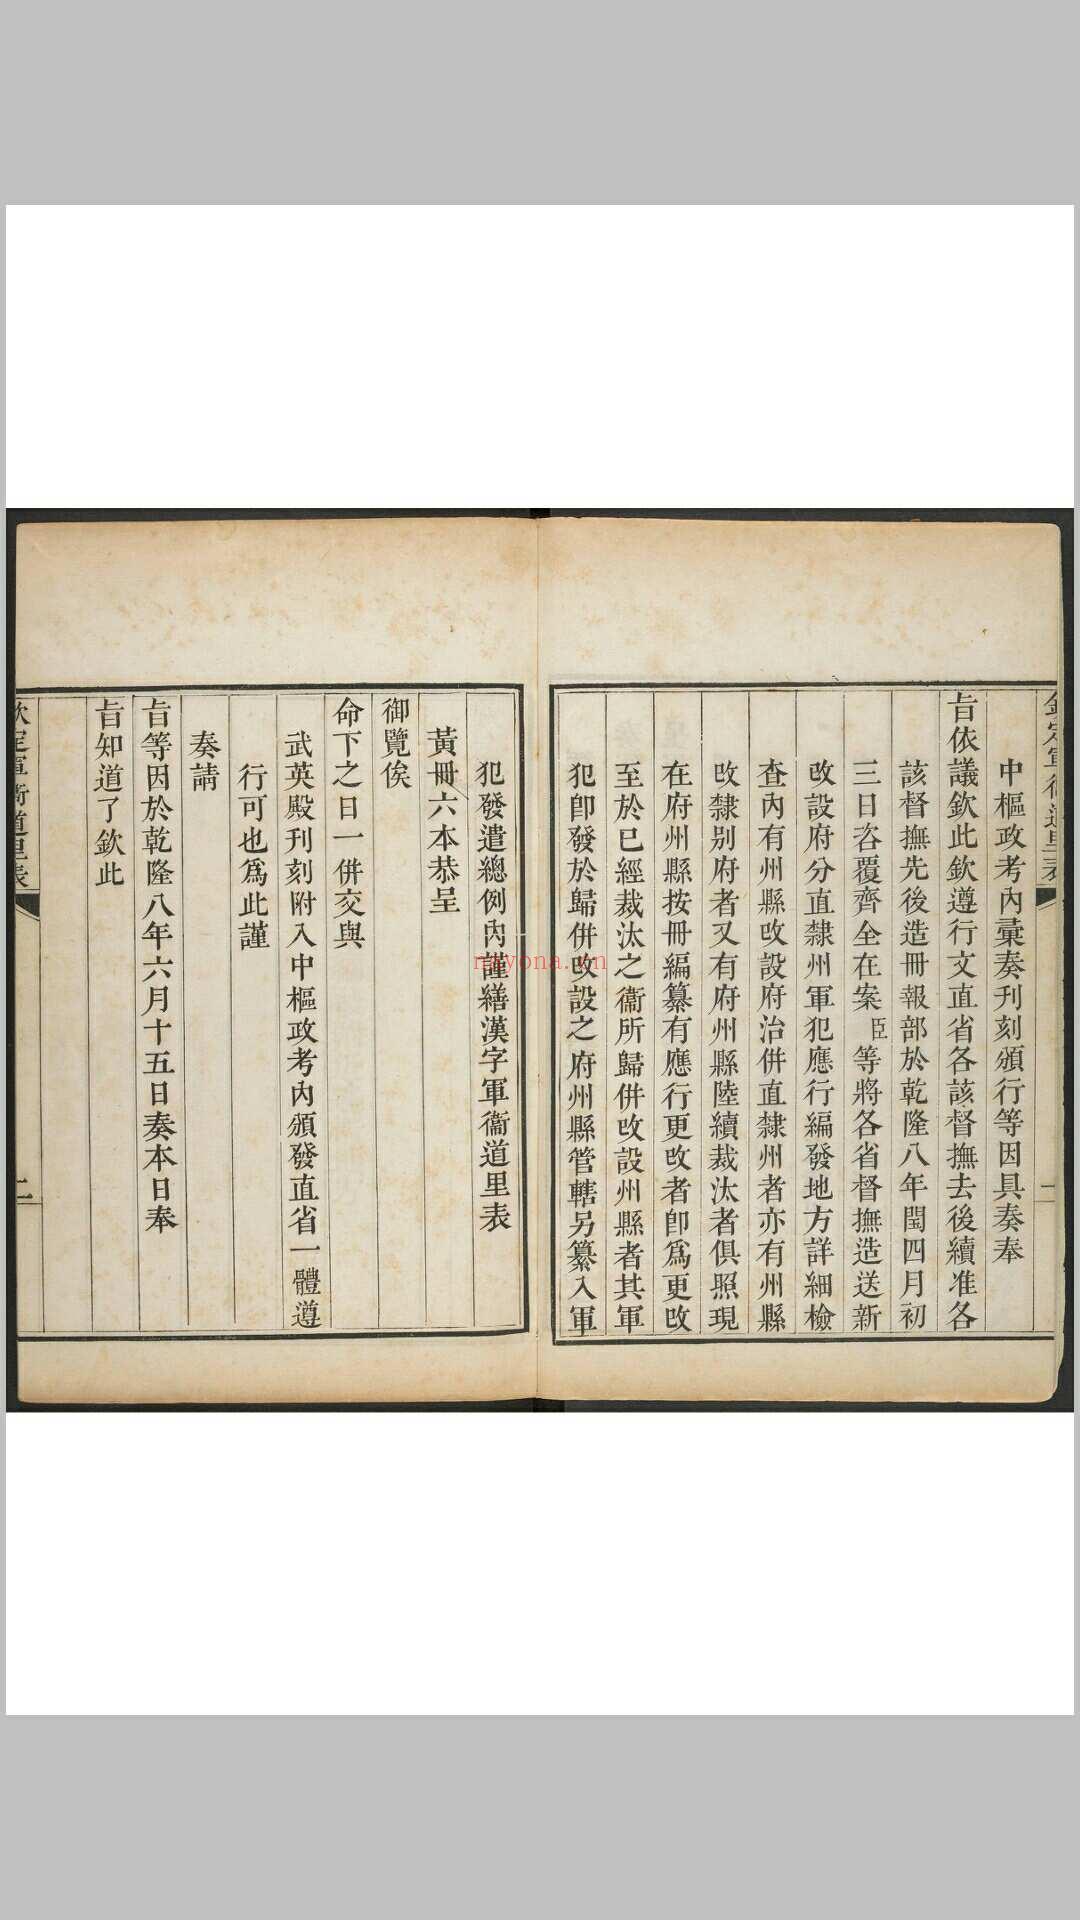 中樞政考內彙奏刊刻頒行等因具奏奉
旨依議欽此欽遵行文直省各該督撫去後續准各
該督撫先後造冊報部於乾隆八年閏四月初
三日咨覆齊全在案臣等將各省督撫造送新
改設府分直隸州軍犯應行編發地方詳細檢
查內有州縣改設府治併直隸州者亦有州縣
改隸别府者又有府州縣陸續裁汰者俱照現
在府州縣按冊編纂有應行更改者卽爲更改
至於已經裁汰之衞所歸併改設州縣者其軍
犯卽發於歸併改設之府州縣管轄另纂入軍
犯發遣總例內謹繕漢字軍衞道里表
黃冊六本恭呈
御覽俟
命下之日一併交與
武英殿刊刻附入中樞政考內頒發直省一體遵
行可也爲此謹
奏請
旨等因於乾隆八年六月十五日奏本日奉
旨知道了欽此
欽定軍衞道里表
nayona.cn